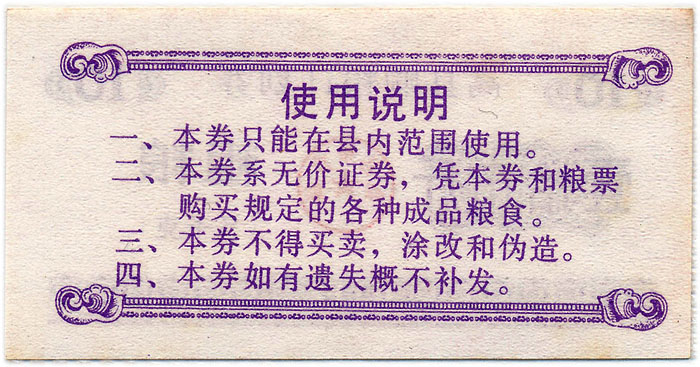 使用说明
一、本券只能在县内范围使用。
二、本券系无价证券，凭本券和粮票
购买规定的各种成品粮食。
三、本券不得买卖，涂改和伪造。
四、本券如有遗失概不补发。